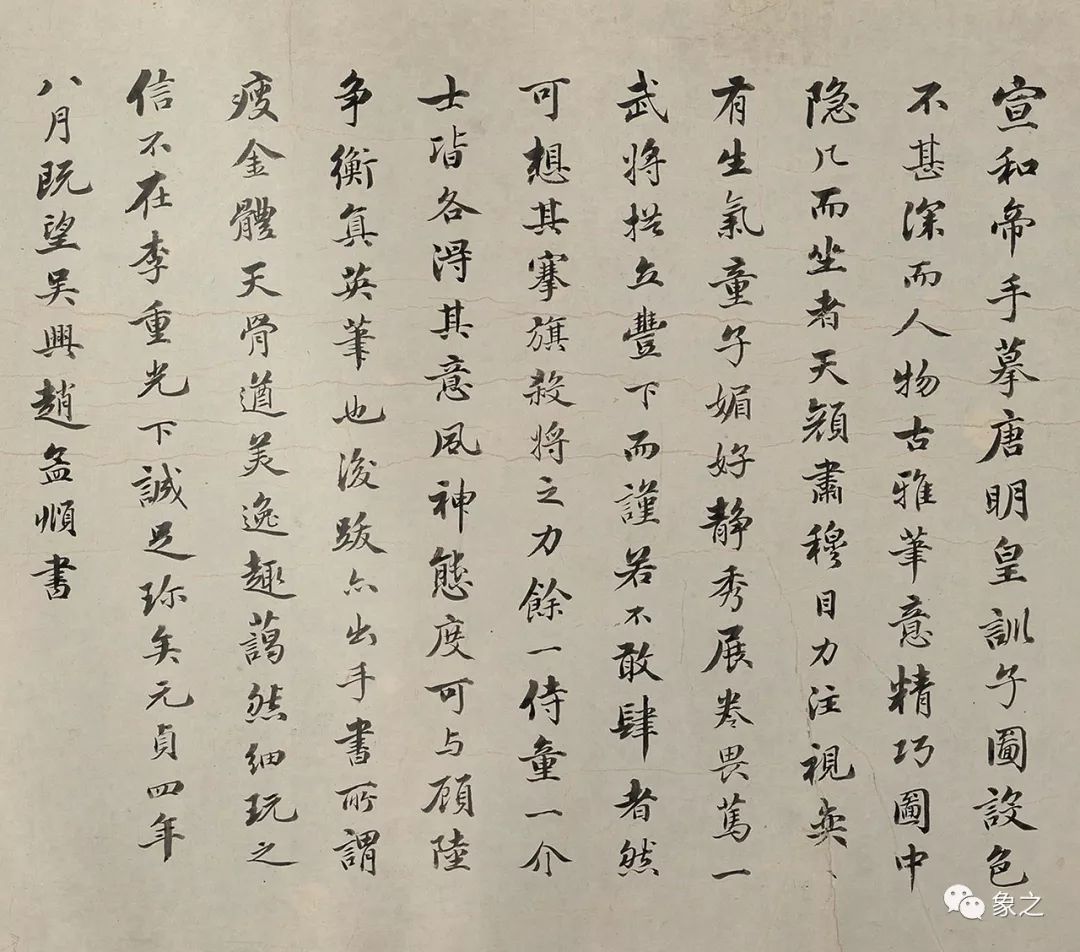 宣和帝手摹唐明皇訓子圖設色
不甚深而人物古雅筆意精巧圖中
隐几而坐者天顏肅穆目力注視奕
有生氣童子媚好静秀展卷畏篤一
武将拱立豐下而謹若不敢肆者然
可想其搴旗殺将之力餘一侍童一介
士皆各得其意風神態度可与顾陸
争衡真英筆也後跋亦出手書所謂
瘦金體天骨遒美逸趣藹然細玩之
信不在李重光下誠足珎矣元貞四年
八月既望吴興趙孟頫書
象之